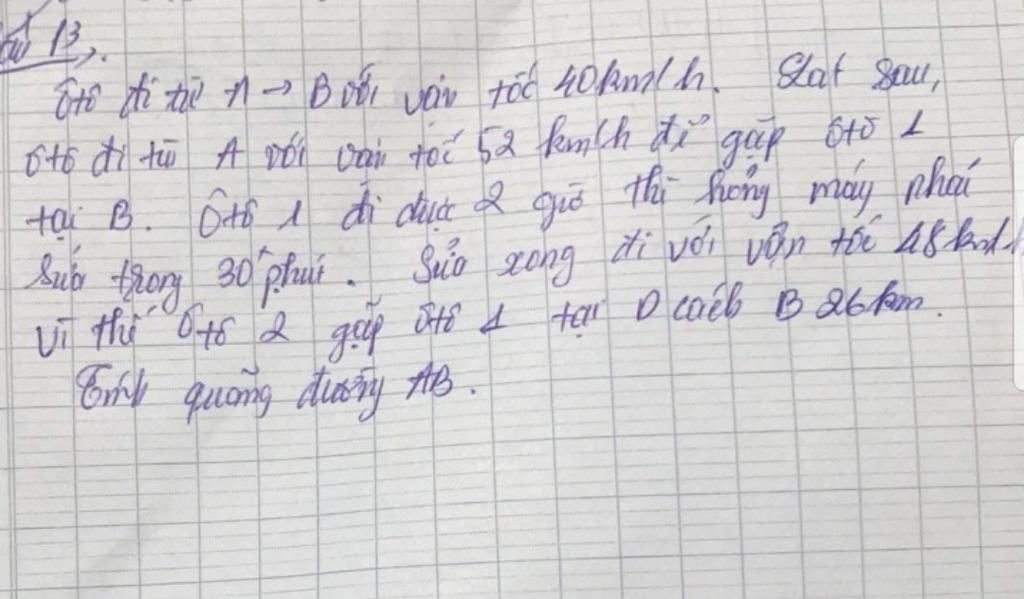 13,
Ôtô đi từ A → B với vận tốc 40km/h. Sau,
ôtô đi từ A với vận tốc 52 km/h để gặp ôtô 1
tại B. Ôtô 1 đi được 2 giờ thì hỏng máy phải
sửa trong 30 phút. Sửa xong đi với vận tốc 48km/h
Vì thế ôtô 2 gặp ôtô 1 tại D cách B 26km.
Tính quãng đường AB.